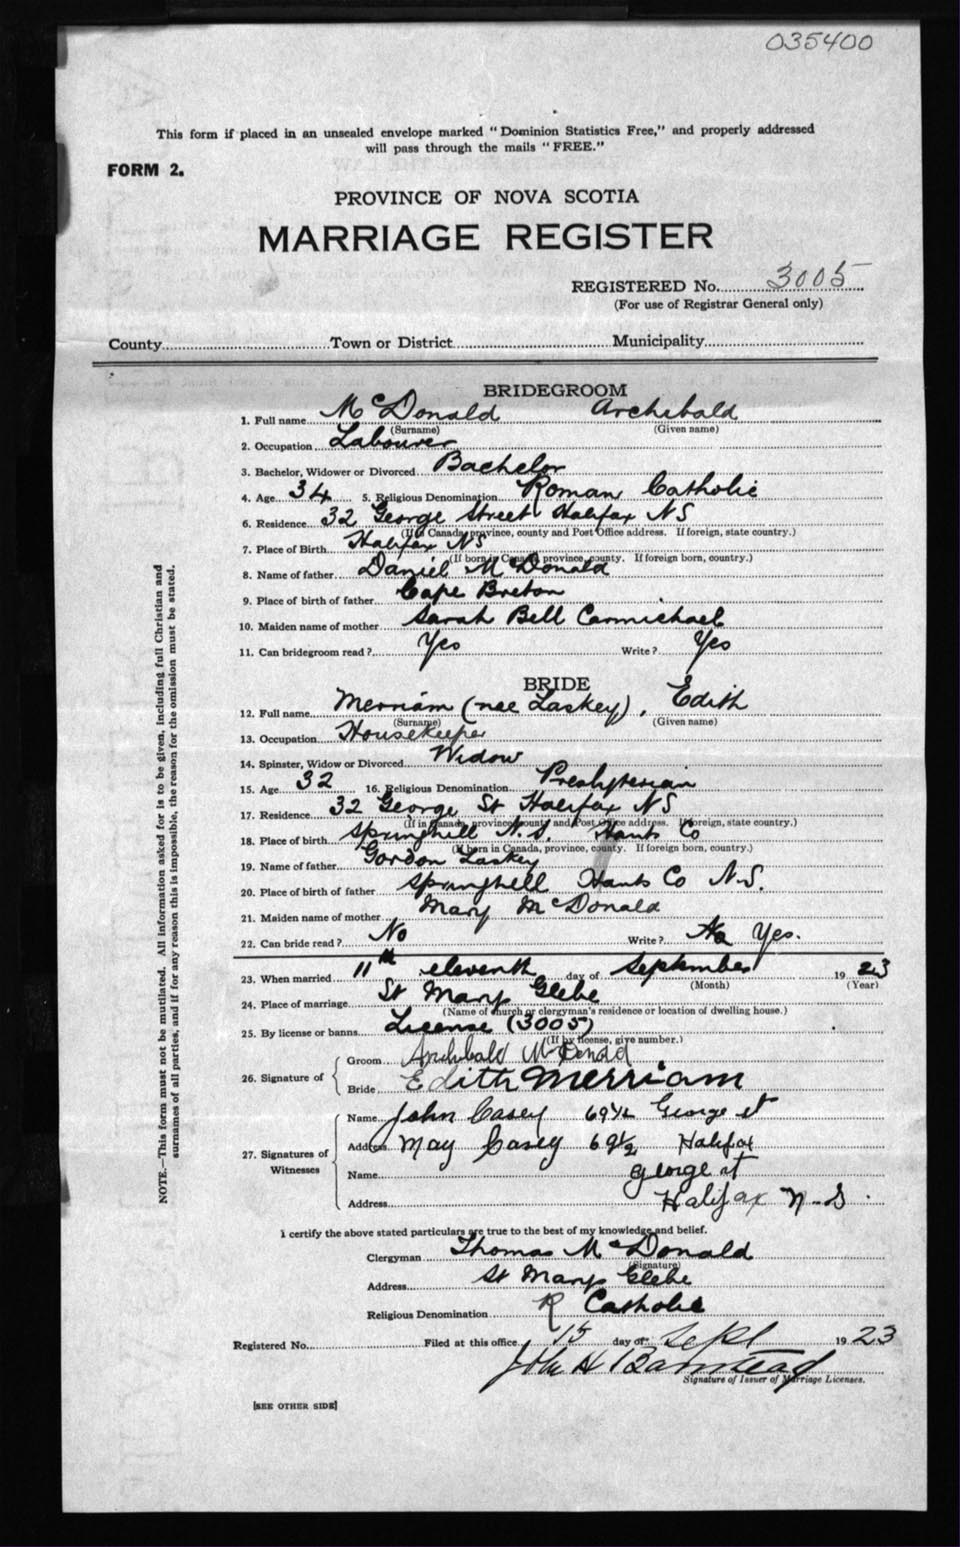 035400
This form if placed in an unsealed envelope marked "Dominion Statistics Free," and properly addressed
will pass through the mails "FREE."
FORM 2.
PROVINCE OF NOVA SCOTIA
MARRIAGE REGISTER
REGISTERED No. 3005
(For use of Registrar General only)
County Town or District Municipality
BRIDEGROOM
1. Full name McDonald Archibald
(Surname) (Given name)
2. Occupation Labourer
3. Bachelor, Widower or Divorced Bachelor
4. Age 34 5. Religious Denomination Roman Catholic
6. Residence 32 George Street Halifax NS
(If in Canada, province, county and Post Office address. If foreign, state country.)
7. Place of Birth Halifax NS
(If born in Canada, province, county. If foreign born, country.)
8. Name of father Daniel McDonald
9. Place of birth of father Cape Breton
10. Maiden name of mother Sarah Bell Carmichael
11. Can bridegroom read? Yes Write? Yes
BRIDE
12. Full name Merriam (nee Laskey), Edith
(Surname) (Given name)
13. Occupation Housekeeper
14. Spinster, Widow or Divorced Widow
15. Age 32 16. Religious Denomination Presbyterian
17. Residence 32 George St Halifax NS
(If in Canada, province, county and Post Office address. If foreign, state country.)
18. Place of birth Springhill N.S. Hants Co
(If born in Canada, province, county. If foreign born, country.)
19. Name of father Gordon Laskey
20. Place of birth of father Springhill Hants Co N.S.
21. Maiden name of mother Mary McDonald
22. Can bride read? No Write? No Yes.
23. When married 11th eleventh day of September 1923
(Month) (Year)
24. Place of marriage St Marys Glebe
(Name of church or clergyman's residence or location of dwelling house.)
25. By license or banns License (3005)
(If by license, give number.)
26. Signature of Groom Archibald McDonald
Bride Edith Merriam
27. Signatures of Witnesses
Name John Casey 69½ George st
Address May Casey 69½ Halifax
Name George st
Address Halifax N-S.
I certify the above stated particulars are true to the best of my knowledge and belief.
Clergyman Thomas McDonald
(Signature)
Address St Marys Glebe
Religious Denomination R Catholic
Registered No. Filed at this office 15 day of Sept 1923
John H Barnstead
Signature of Issuer of Marriage Licenses.
[SEE OTHER SIDE]
NOTE.—This form must not be mutilated. All information asked for is to be given, including full Christian and
surnames of all parties, and if for any reason this is impossible, the reason for the omission must be stated.